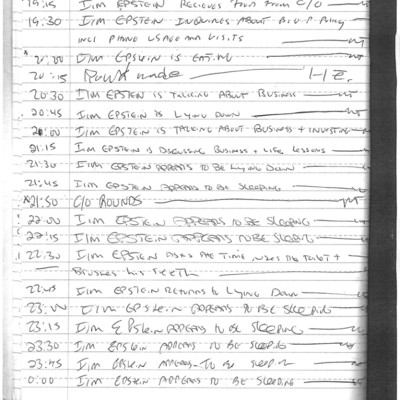 19:15 I/M EPSTEIN RECIEVES FOOD FROM C/O
19.30 I/M EPSTEIN INQUIRES ABOUT
INCL PHONE USAGE AND VISITS
20:00 I/M EPSTEIN IS EATING
20:15 Round made
20:30 I/M EPSTEIN IS TALKING ABOUT BUSINESS
20:45 I/M EPSTEIN IS LYING DOWN
I/M EPSTEIN IS TALKING ABOUT BUSINESS + INVESTING
21:15 I/M EPSTEIN IS DISCUSSING BUSINESS + LIFE LESSONS
21:30 I/M EPSTEIN APPEARS TO BE LYING DOWN
21:45 I/M EPSTEIN APPEARS TO BE SLEEPING
*21:50 C/O ROUNDS
22:00 I/M EPSTEIN APPEARS TO BE SLEEPING
22:15 I/M EPSTEIN APPEARS TO BE SLEEPING
22.30 I/M EPSTEIN ASKS THE TIME USES THE TOILET +
BRUSHES HIS TEETH
22:45 I/M EPSTEIN RETURNS TO LYING DOWN
23:00 I/M EPSTEIN APPEARS TO BE SLEEPING
23:15 I/M EPSTEIN APPEARS TO BE SLEEPING
23:30 I/M EPSTEIN APPEARS TO BE SLEEPING
23:45 I/M EPSTEIN APPEARS TO BE SLEEPING
0:00 I/M EPSTEIN APPEARS TO BE SLEEPING